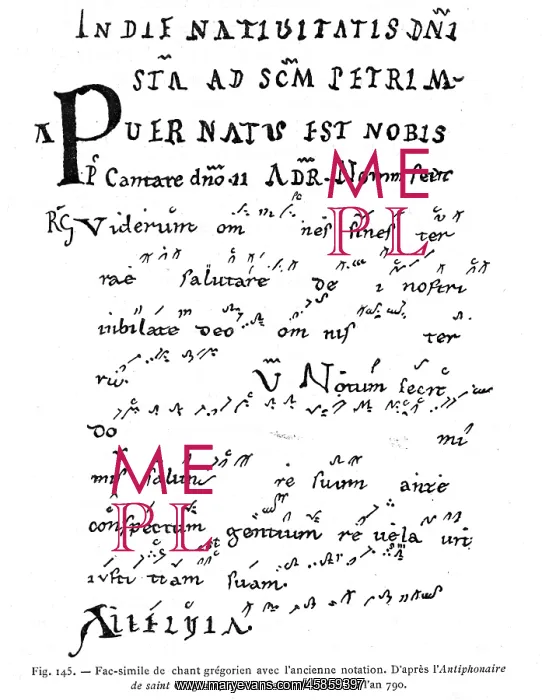 IN DIE NATIUITATIS DÑI
STA AD SCM PETRI M
A PUER NATUS EST NOBIS
P Cantate dño II ADR Notum fecit
RG Viderunt om nes fines ter
rae salutare de i nostri
iubilate deo om nis ter
ra V Notum fecit
do mi
nus salutare re suum ante
conspectum gentium re uela uit
iusti tiam suam.
Alleluia.
ME
PL
ME
PL
Fig. 145. — Fac-simile de chant grégorien avec l'ancienne notation. D'après l'Antiphonaire
de saint
www.maryevans.com/45859397
l'an 790.